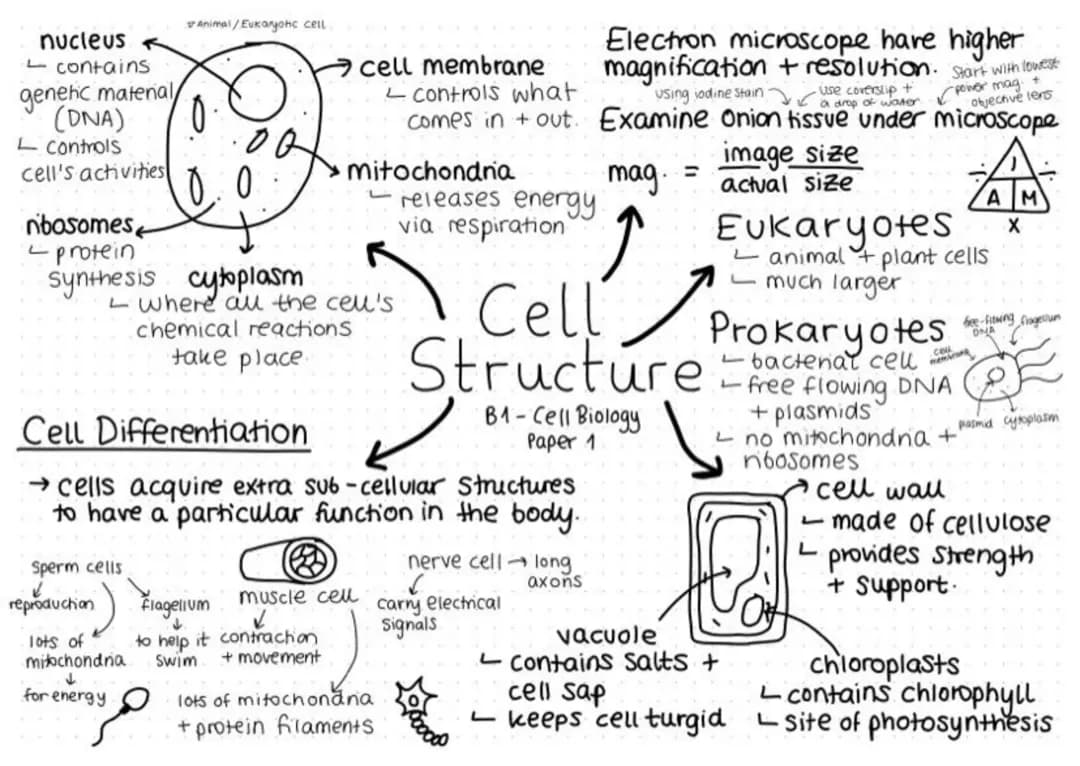 Animal/Eukaryotic cell
nucleus
contains
genetic material
(DNA)
controls
cell's activities
ribosomes
protein
synthesis
cytoplasm
where all the cell's
chemical reactions
take place.
cell membrane
controls what
comes in + out.
mitochondria
releases energy
via respiration
Electron microscope have higher
magnification + resolution.
using iodine stain
use coverslip +
a drop of water
Start with lowest
power mag. +
objective lens
Examine onion tissue under microscope
mag. = image size
actual size
÷ I ÷
A M
x
Eukaryotes
animal + plant cells
much larger
Prokaryotes
bacterial cell
free flowing DNA
+ plasmids
no mitochondria +
ribosomes
free-flowing
DNA
flagellum
cell
membrane
plasmid
cytoplasm
Cell
Structure
B1 - Cell Biology
Paper 1
Cell Differentiation
→ cells acquire extra sub-cellular structures
to have a particular function in the body.
sperm cells
reproduction
flagellum
lots of
mitochondria
to help it
swim
for energy
muscle cell
contraction
+ movement
lots of mitochondria
+ protein filaments
nerve cell → long
axons
carry electrical
signals
cell wall
made of cellulose
provides strength
+ support.
vacuole
contains salts +
cell sap
keeps cell turgid
chloroplasts
contains chlorophyll
site of photosynthesis